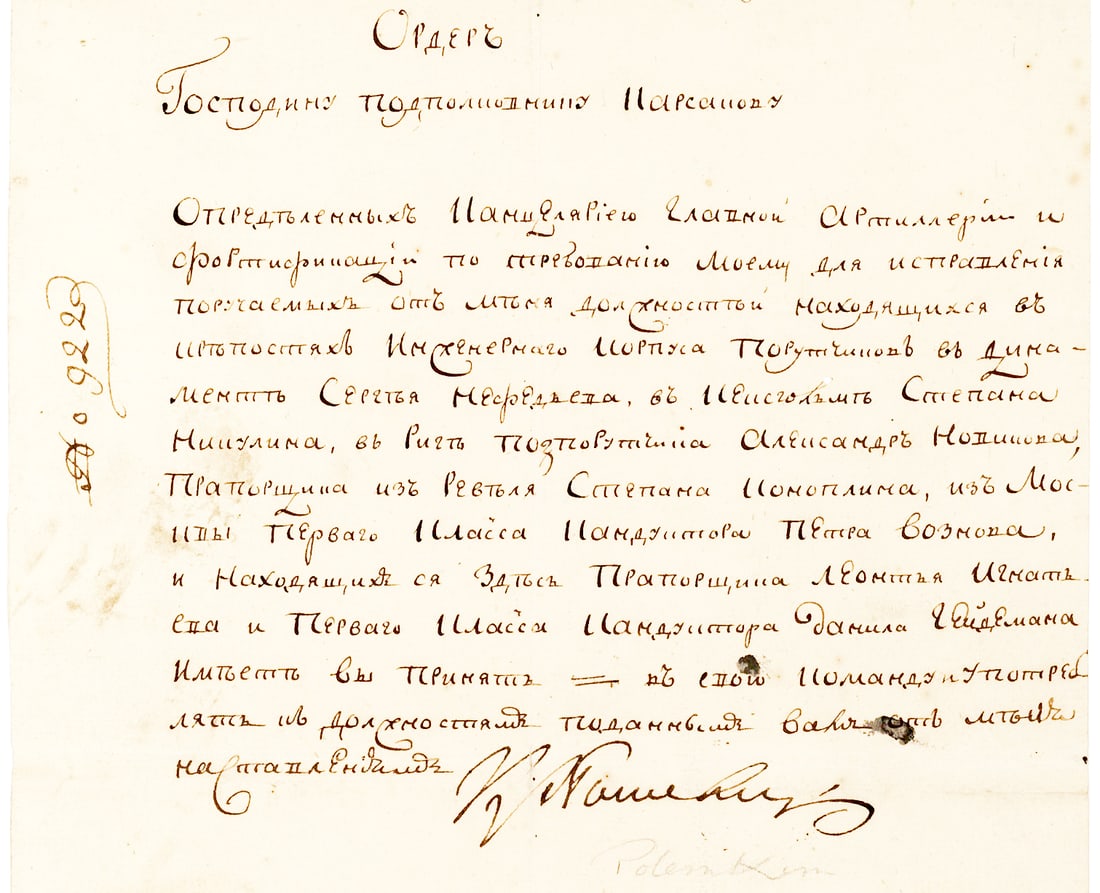 Ордеръ
Господину подполковнику Карсакову
Опредѣленныхъ Канцеляріею Главной Артиллеріи и
фортификаціи по требованію моему для исправленія
поручаемыхъ отъ мѣня должностьй находящихся въ
крѣпостяхъ Инженернаго Корпуса Поручиковъ въ Дина-
ментѣ Сергѣя Нефедьева, въ Кексголмѣ Степана
Никулина, въ Ригѣ подпоручика Александръ Новикова,
Прапорщика изъ Ревѣля Степана Коноплина, изъ Мос-
квы Перваго Класса Кандуктора Петра Вознова,
и находящихъ ся здѣсь Прапорщика Леонтья Игнать-
ева и Перваго Класса Кандуктора Данила Гейдемана
Имѣетѣ вы принять = въ свою Команду и употреб
лять къ должностямъ поданнымъ вамъ отъ мѣнъ
наставленіямъ
К Потемкинъ
№ 9229
Potemkin